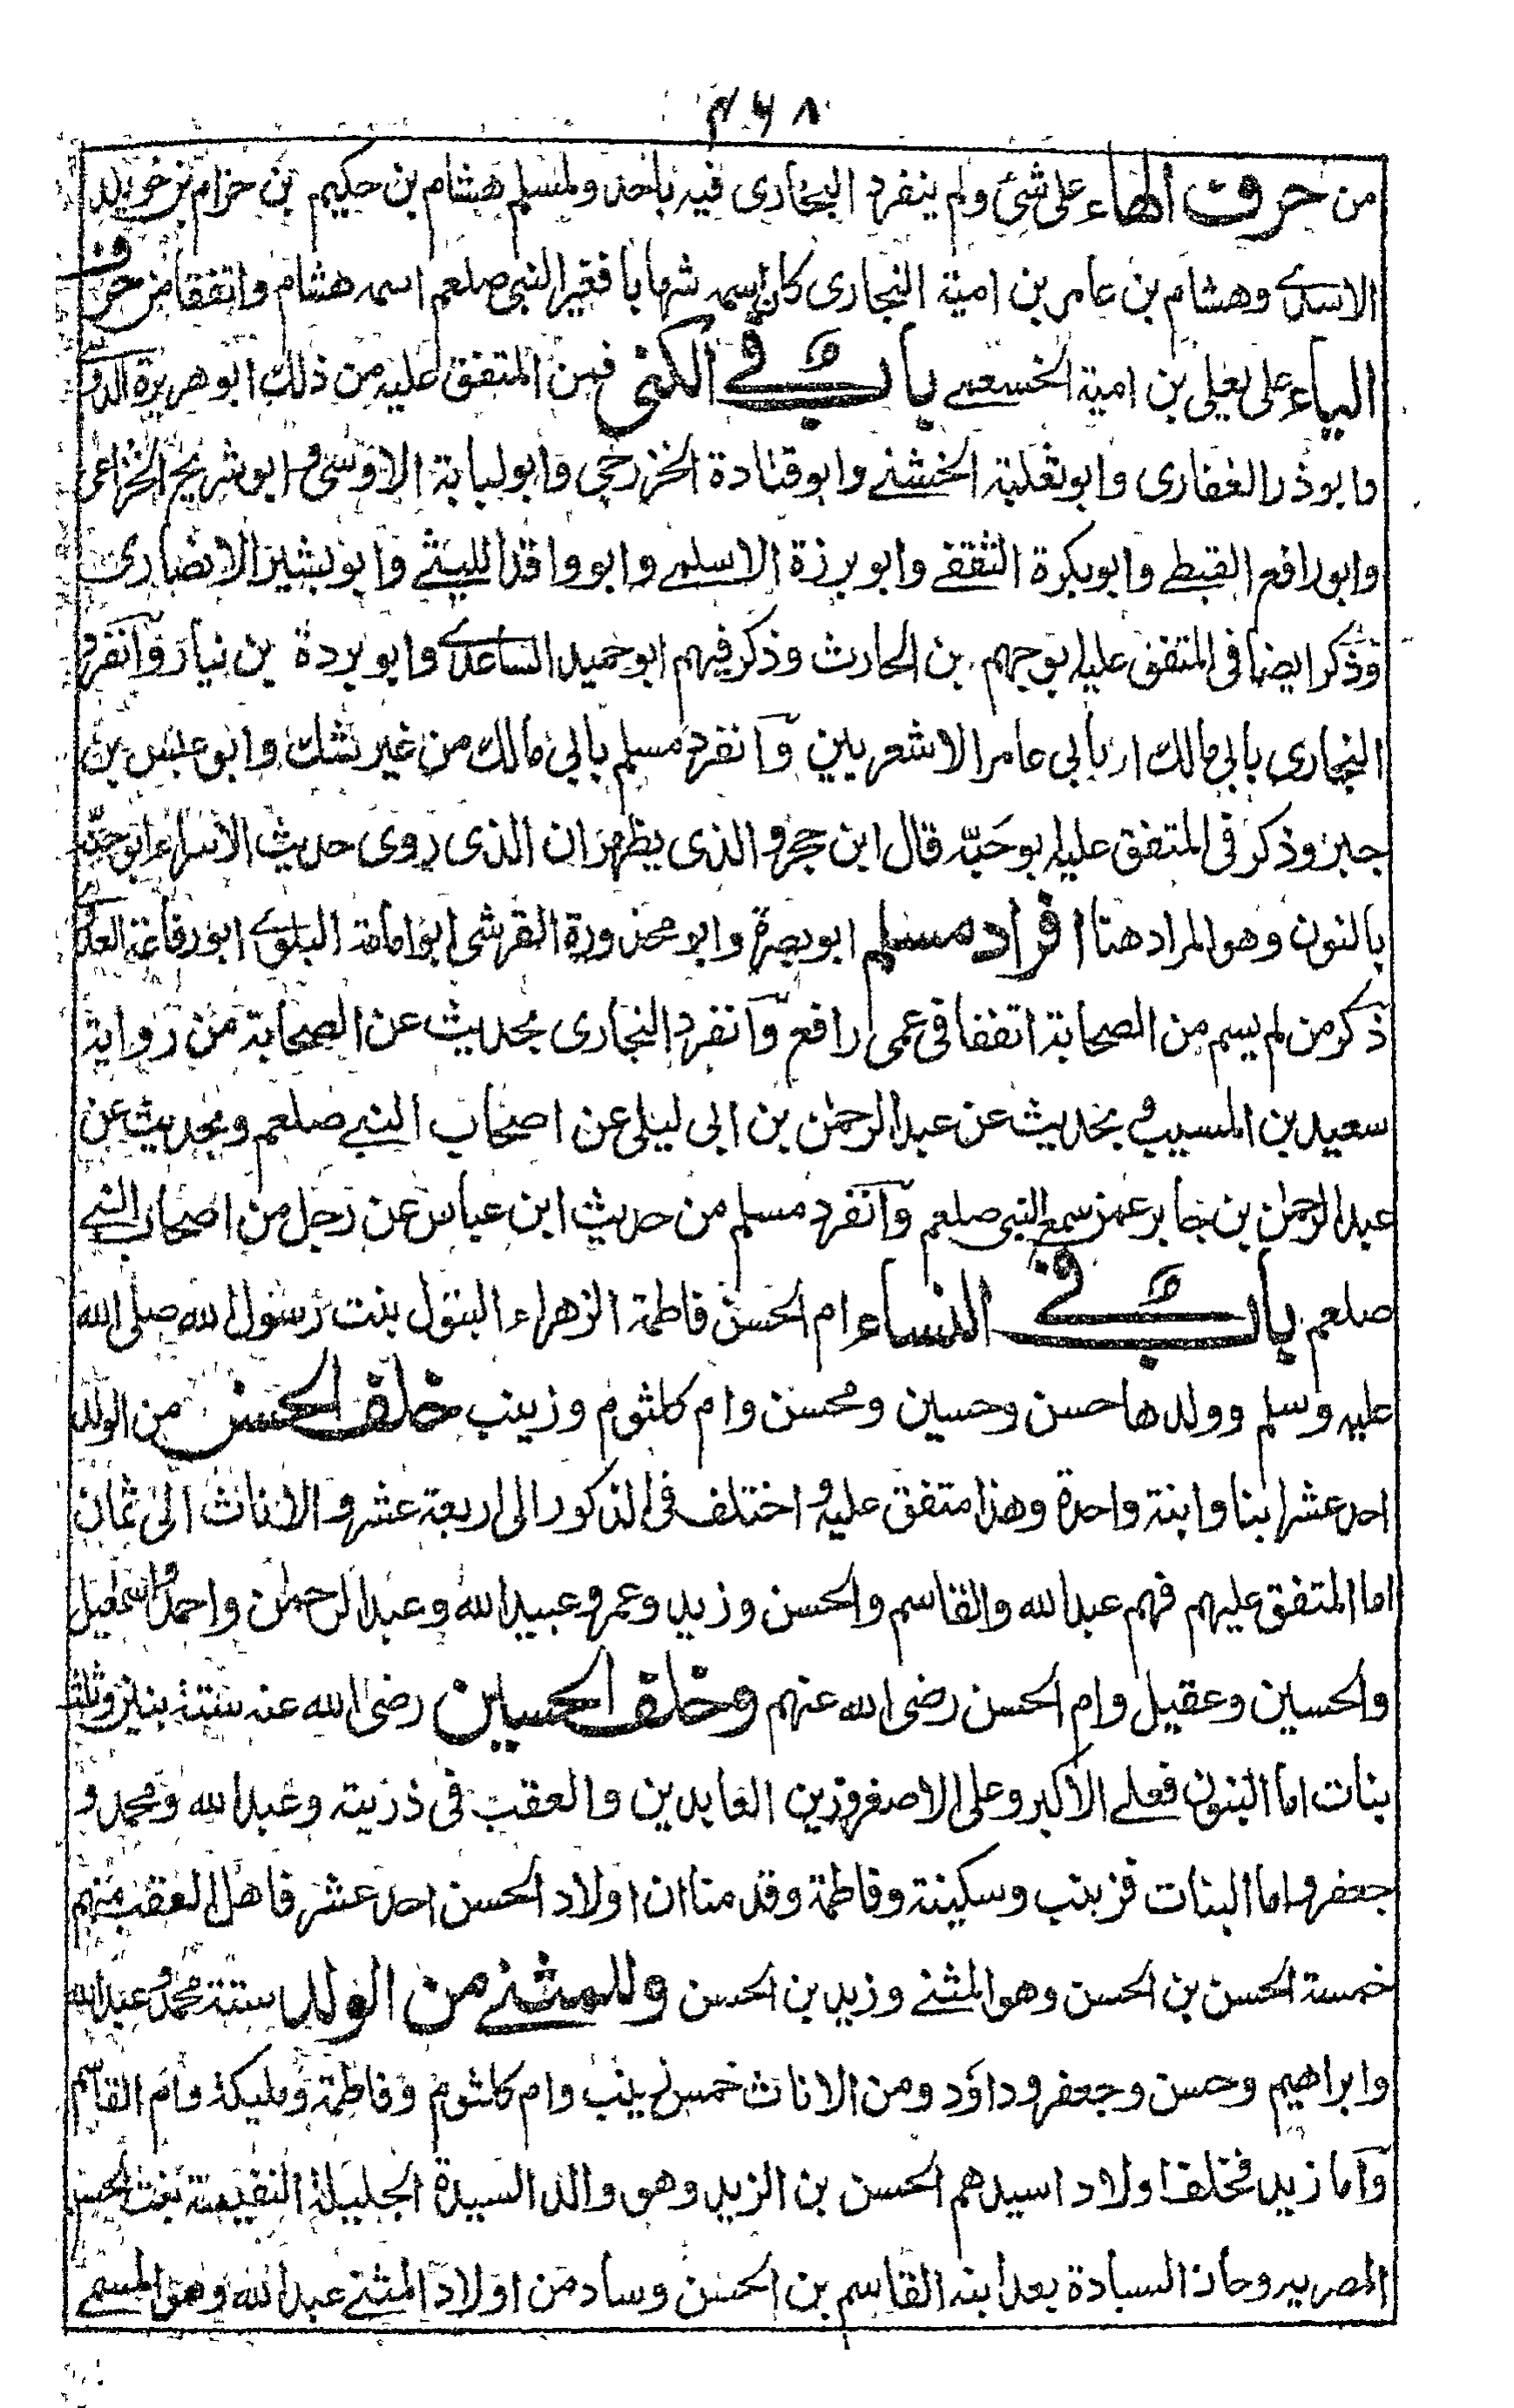 ٤٦٨
من حرف الهاء على شئ ولم ينفرد البخارى فيه باحد ولمسلم هشام بن حكيم بن حزام بن خويلد
الاسدے وهشام بن عامر بن امية النجارى كان اسمه شهابا فغير النبى صلعم اسمه هشام واتفقا من حرف
الياء على يعلى بن امية الخسعمے باب فے الكنى فمن المتفق عليه من ذلك ابو هريرة الدوسے
وابوذر الغفارى وابو ثعلبة الخشنے وابو قتادة الخزرجى وابو لبابة الاوسى وابو شريح الخزاعى
وابو رافع القبطے وابو بكرة الثقفے وابو برزة الاسلمے وابو واقد الليثے وابو بشير الانصارى
وذكر ايضا فى المتفق عليه ابو جهم بن الحارث وذكر فيهم ابو حميد الساعدے وابو بردة بن نيار وآنفرد
البخارى بابى مالك او بابى عامر الاشعريين وآنفرد مسلم بابى مالك من غير شك وابو عبس بن
جبر وذكر فى المتفق عليه ابو حبّه قال ابن حجر والذى يظهر ان الذى روى حديث الاسراء ابو حنّه
بالنون وهو المراد هنا افراد مسلم ابو بصرة وابو محذورة القرشى ابو امامة البلوے ابو رفاعة العدوے
ذكر من لم يسم من الصحابة اتفقا فى عمى رافع وآنفرد البخارى بحديث عن الصحابة من رواية
سعيد بن المسيب و بحديث عن عبد الرحمٰن بن ابى ليلى عن اصحاب النبے صلعم وبحديث عن
عبد الرحمٰن بن جابر عمن سمع النبى صلعم وآنفرد مسلم من حديث ابن عباس عن رجل من اصحاب النبے
صلعم باب فے النساء ام الحسن فاطمة الزهراء البتول بنت رسول الله صلى الله
عليه وسلم وولدها حسن وحسين ومحسن وام كلثوم وزينب خلف الحسن من الولد
احد عشر ابنا وابنة واحدة وهذا متفق عليه و اختلف فى الذكور الى اربعة عشر و الاناث الى ثمان
اما المتفق عليهم فهم عبد الله والقاسم والحسن وزيد وعمر وعبيد الله وعبد الرحمٰن واحمد واسمٰعيل
والحسين وعقيل وام الحسن رضى الله عنهم وخلف الحسين رضى الله عنه ستة بنين وثلث
بنات اما البنون فعلے الاكبر وعلى الاصغر وزين العابدين والعقب فى ذريته وعبد الله ومحمد و
جعفر واما البنات فزينب وسكينة وفاطمة وقدمنا ان اولاد الحسن احد عشر فاهل العقب منهم
خمسة الحسن بن الحسن وهو المثنے وزيد بن الحسن وللمثنے من الولد ستة محمد وعبد الله
وابراهيم وحسن وجعفر وداؤد ومن الاناث خمس زينب وام كلثوم وفاطمة ومليكة وام القاسم
وآما زيد فخلف اولاد اسيدهم الحسن بن الزيد وهو والد السيدة الجليلة النفيسة بنت الحسن
المصريه وحاز السيادة بعد ابنه القاسم بن الحسن وساد من اولاد المثنے عبد الله وهو المسمے